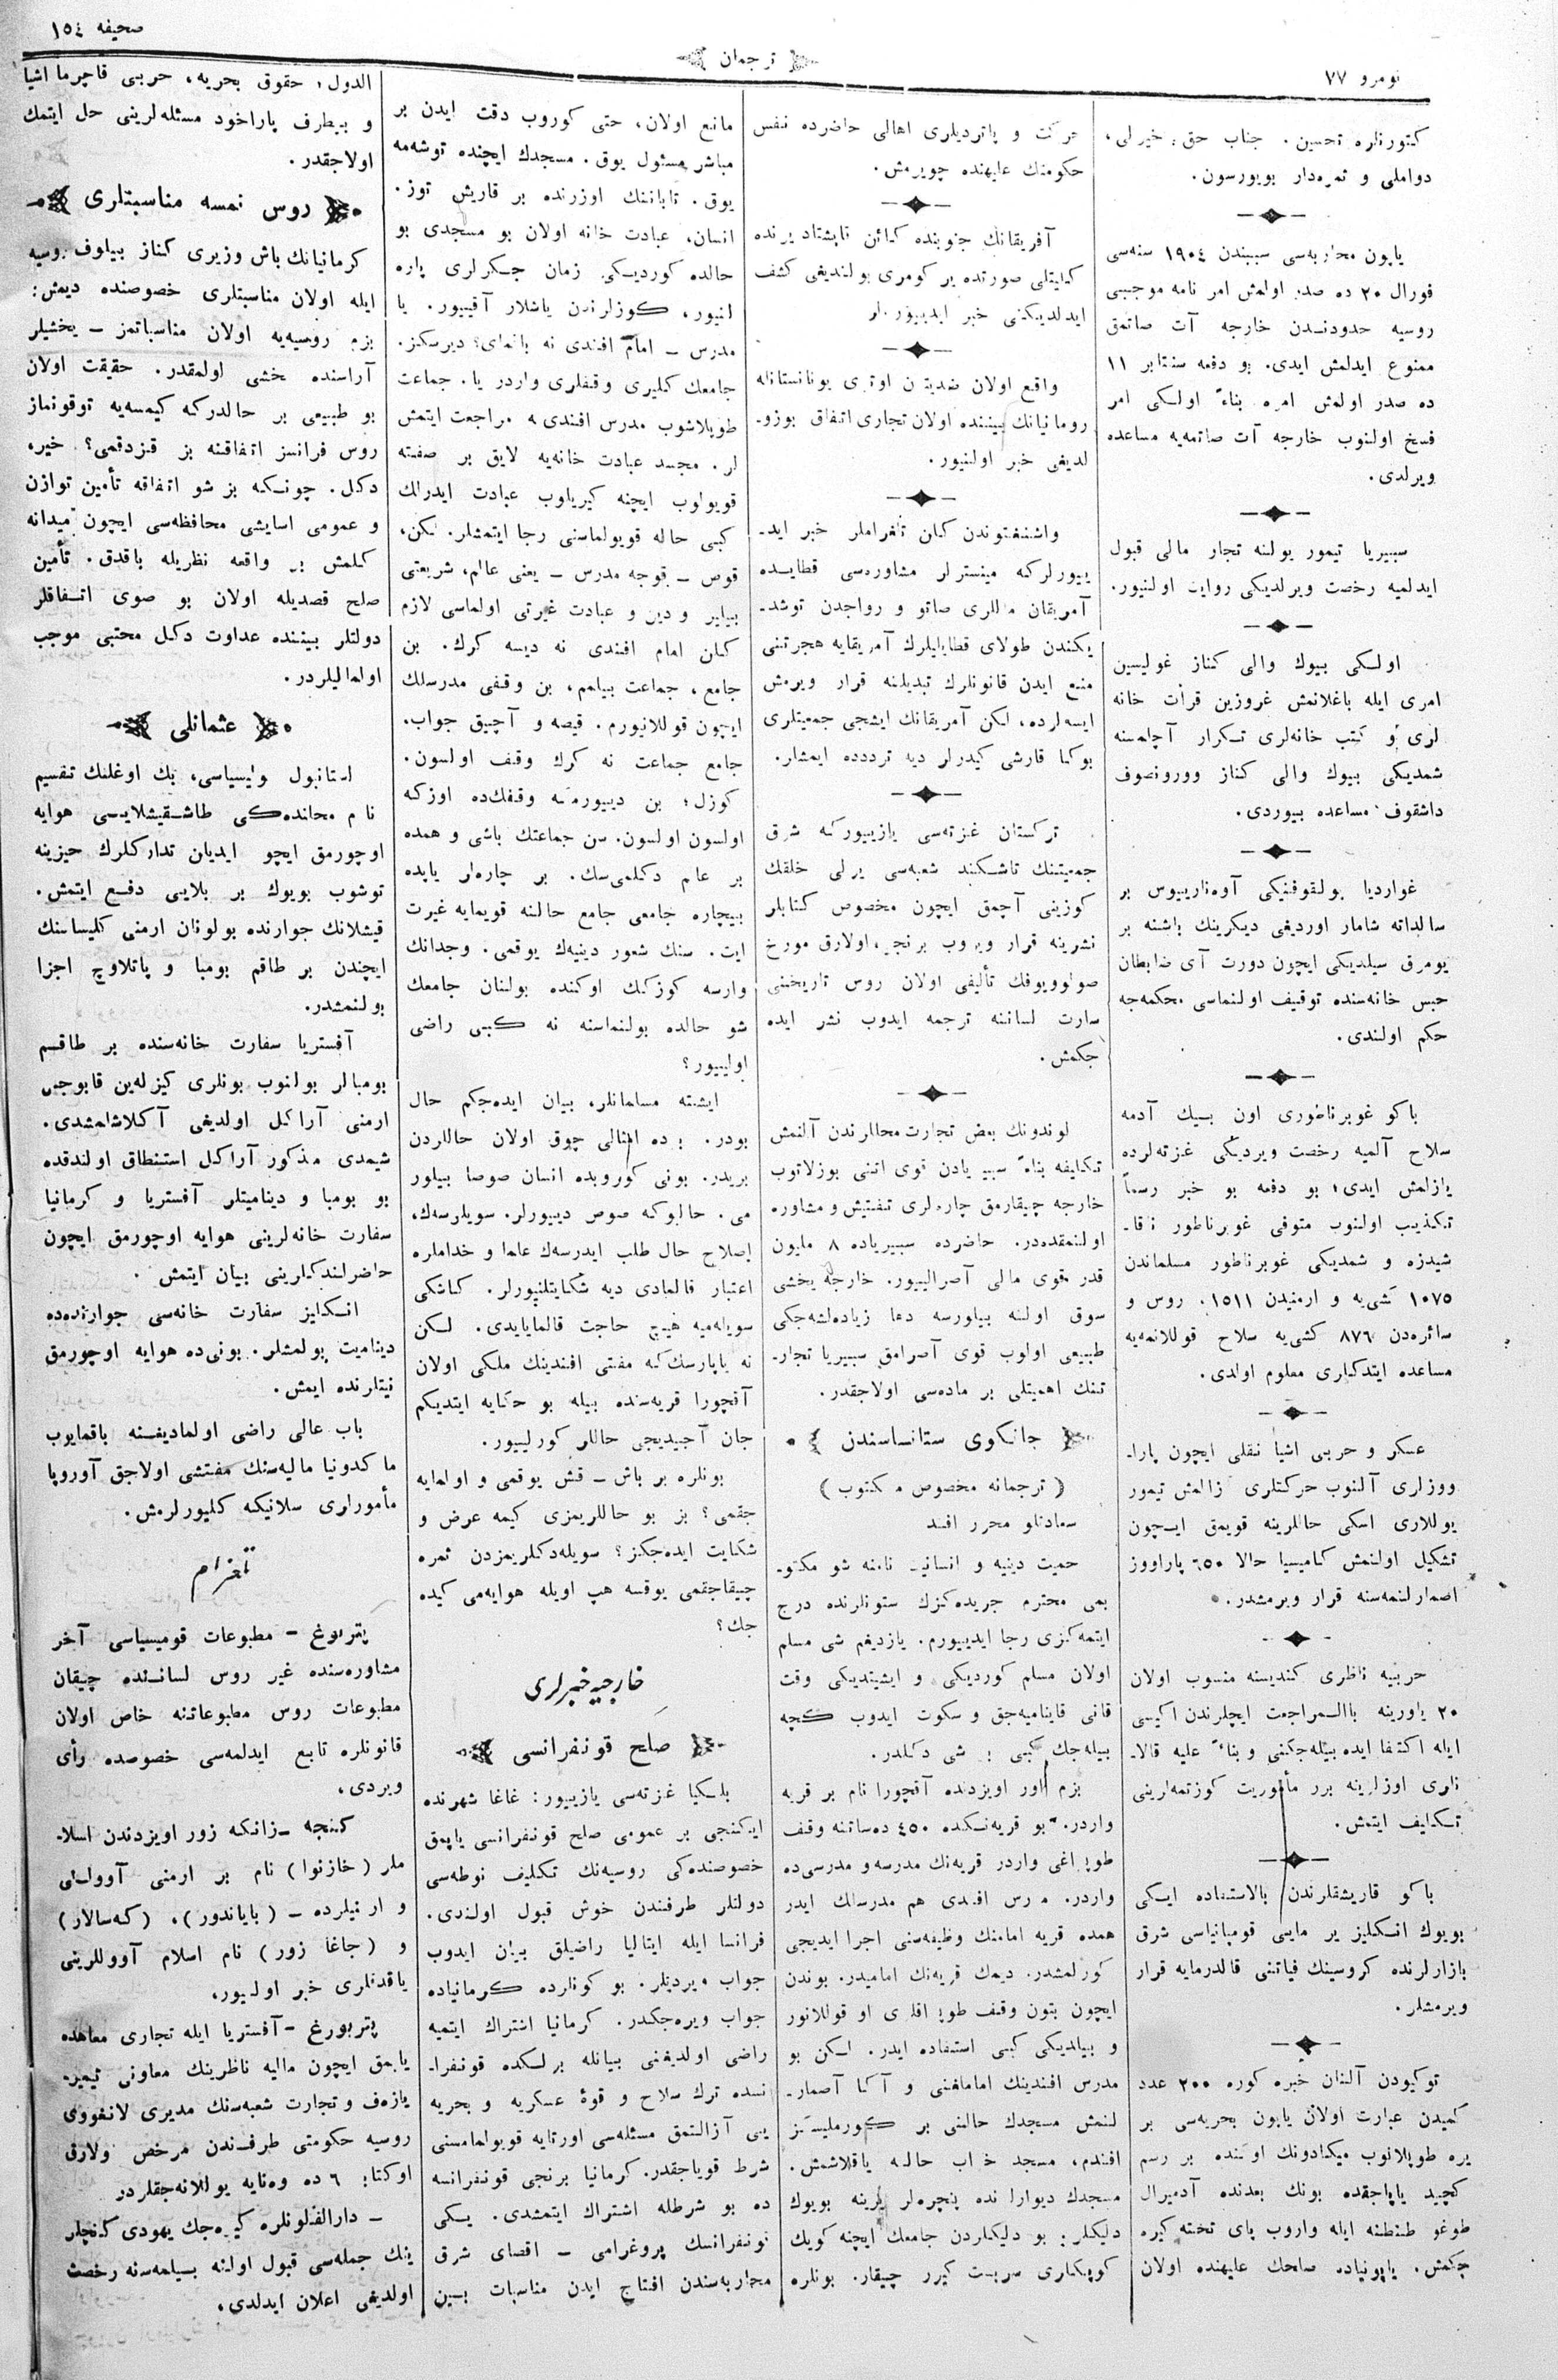 نومرو ٧٧
ترجمان
صحيفه ١٥٤
كتورنلره تحسين. جناب حق، خيرلى،
دواملى و ثمره‌دار بويورسون.
ياپون محاربه‌سى سببندن ١٩٠٤ سنه‌سى
فورال ٢٠ ده صدر اولمش امر نامه موجبنجى
روسيه حدودندن خارجه آت صاتمق
ممنوع ايدلمش ايدى. بو دفعه سنتابر ١١
ده صدر اولمش امره بناءً اولكى امر
فسخ اولنوب خارجه آت صاتمه‌يه مساعده
ويرلدى.
سيبيريا تيمور يولنه تجار مالى قبول
ايدلميه رخصت ويرلديكى روايت اولنيور.
اولكى بيوك والى كناز غوليسين
امرى ايله باغلانمش غروزين قرأت خانه
لرى و كتب خانه‌لرى تكرار آچلمسنه
شمديكى بيوك والى كناز وورونصوف
داشقوف مساعده بيوردى.
غوارديا پولقوفنيكى آوه‌ناريوس بر
سالداته شامار اورديغى ديكرينك باشنه بر
يومرق سيلديكى ايچون دورت آى ضابطان
حبس خانه‌سنده توقيف اولنماسى محكمه‌جه
حكم اولندى.
باكو غوبرناطورى اون بيك آدمه
سلاح آلميه رخصت ويرديكى غزته‌لرده
يازلمش ايدى؛ بو دفعه بو خبر رسماً
تكذيب اولنوب متوفى غوبرناطور ناقا-
شيدزه و شمديكى غوبرناطور مسلماندن
١٠٧٥ كشى‌يه و ارمنيدن ١٥١١، روس و
سائره‌دن ٨٧٦ كشى‌يه سلاح قوللانمه‌يه
مساعده ايتدكلرى معلوم اولدى.
عسكر و حربى اشيا نقلى ايچون پارا-
ووزلرى آلنوب حركتلرى آزالمش تيمور
يوللارى اسكى حاللرينه قويمق ايچون
تشكيل اولنمش كاميسيا حالا ٦٥٠ پاراووز
اصمارلنمه‌سنه قرار ويرمشدر.
حربيه ناظرى كنديسنه منسوب اولان
٢٠ ياورينه باالمراجعت ايچلرندن ايكيسى
ايله اكتفا ايده بيله‌جكنى و بناءً عليه قالا-
نلرى اوزلرينه برر مأموريت كوزتمه‌لرينى
تكليف ايتمش.
باكو قاريشقلرندن بالاستفاده ايكى
بويوك انكليز ير مايى قومپانياسى شرق
بازارلرنده كروسينك فياتنى قالدرمايه قرار
ويرمشلر.
توكيودن آلنان خبره كوره ٢٠٠ عدد
كميدن عبارت اولان ياپون بحريه‌سى بر
يره طوپلانوب ميكادونك اوكنده بر رسم
كچيد ياپاجقده بونك بعدنده آدميرال
طوغو طنطنه ايله واروب پاى تخته كيره
جكمش. ياپونياده صلحك عليهنده اولان
حركت و پاترديلرى اهالى حاضرده نفس
حكومتك عليهنده چويرمش.
آفريقانك جنوبنده كائن تاپشتاد يرنده
كليتلى صورتده ير كومرى بولنديغى كشف
ايدلديكنى خبر ايدييورلر
واقع اولان ضديتن اوترى يونانستانله
رومانيانك بيننده اولان تجارى اتفاق بوزو-
لديغى خبر اولنيور.
واشنغتوندن كلن تلغراملر خبر ايد-
ييورلركه مينسترلر مشاوره‌سى قطايده
آمريقان ماللرى صاتو و رواجدن توشد-
يكندن طولاى قطايليلرك آمريقايه هجرتنى
منع ايدن قانونلرك تبديلنه قرار ويرمش
ايسه‌لرده، لكن آمريقانك ايشجى جمعيتلرى
بوكا قارشى كيدرلر ديه تردده ايمشلر.
تركستان غزته‌سى يازييوركه شرق
جمعيتنك تاشكند شعبه‌سى يرلى خلقك
كوزينى آچمق ايچون مخصوص كتابلر
نشرينه قرار ويروب برنجى اولارق مورخ
صولوويوفك تأليفى اولان روس تاريخنى
سارت لساننه ترجمه ايدوب نشر ايده
جكمش.
لوندونك بعض تجارت محللرندن آلنمش
تكليفه بناءً سيبيريادن قوى اتنى بوزلاتوب
خارجه چيقارمق چاره‌لرى تفتيش و مشاوره
اولنمقده‌در. حاضرده سيبيرياده ٨ مليون
قدر قوى مالى آصراليور. خارجه يخشى
سوق اولنه بيلورسه دها زياده‌لشه‌جكى
طبيعى اولوب قوى آصرامق سيبيريا تجار-
تنك اهميتلى بر ماده‌سى اولاجقدر.
جانكوى ستانساسندن
(ترجمانه مخصوص مكتوب)
سعادتلو محرر افند
حميت دينيه و انسانيت نامنه شو مكتو-
بمى محترم جريده‌كزك ستونلرنده درج
ايتمه‌كزى رجا ايدييورم. يازديغم شى مسلم
اولان مسلم كورديكى و ايشيتديكى وقت
قانى قاينامیه‌جق و سكوت ايدوب كچه
بيله‌جك كبى بر شى دكلدر.
بزم اور اويزدنده آقچورا نام بر قريه
واردر. بو قريه‌نكده ٤٥٠ ده‌ساتنه وقف
طوپراغى واردر قريه‌نك مدرسه و مدرسى‌ده
واردر. مدرس افندى هم مدرسلك ايدر
همده قريه امامنك وظيفه‌سنى اجرا ايديجى
كورلمشدر. ديمك قريه‌نك اماميدر. بوندن
ايچون بتون وقف طوپراقلرى او قوللانور
و بيلديكى كبى استفاده ايدر. لكن بو
مدرس افندينك اماملغنى و آكا آصمار-
لنمش مسجدك حالنى بر كورمليسكز
افندم، مسجد خراب حالنه ياقلاشمش.
مسجدك ديوارلرنده پنجره‌لر يرينه بويوك
دليكلر؛ بو دليكلردن جامعك ايچنه كويك
كوپكلرى سربست كيرر چيقار. بونلره
مانع اولان، حتى كوروب دقت ايدن بر
مباشر مسئول يوق. مسجدك ايچنده توشه‌مه
يوق. تاباننك اوزرنده بر قاريش توز.
انسان، عبادت خانه اولان بو مسجدى بو
حالده كورديكى زمان جكرلرى پاره
لنيور، كوزلرندن ياشلار آقييور. يا
مدرس - امام افندى نه باتماى؟ ديرسكز.
جامعك كليرى وقفلرى واردر يا. جماعت
طوپلاشوب مدرس افندى‌ه مراجعت ايتمش
لر. مجسد عبادت خانه‌يه لايق بر صفته
قويولوب ايچنه كيريلوب عبادت ايدرلك
كبى حاله قويولماسنى رجا ايتمشلر. لكن،
قوص - قوجه مدرس - يعنى عالم، شريعتى
بيلير و دين و عبادت غيرتى اولماسى لازم
كلن امام افندى نه ديسه كرك. بن
جامع، جماعت بيلمم، بن وقفى مدرسلك
ايچون قوللانيورم. قيصه و آچيق جواب.
جامع جماعت نه كرك وقف اولسون.
كوزل؛ بن دييورمكه وقفك‌ده اوزكه
اولسون اولسون. سن جماعتك باشى و همده
بر عالم دكلمى‌سك. بر چاره‌لر ياپده
بيچاره جامعى جامع حالنه قويمايه غيرت
ايت. سنك شعور دينيه‌ك يوقمى. وجدانك
وارسه كوزكك اوكنده بولنان جامعك
شو حالده بولنماسنه نه كبى راضى
اولييور؟
ايشته مسلمانلر، بيان ايده‌جكم حال
بودر. بر ده امثالى چوق اولان حاللردن
بريدر. بونى كوروبده انسان صوصا بيلور
مى. حالبوكه صوص دييورلر. سويلرسه‌ك،
اصلاح حال طلب ايدرسه‌ك علما و خداملره
اعتبار قالمادى ديه شكايتلنيورلر. كاشكى
سويله‌ميه هيچ حاجت قالمايايدى. لكن
نه ياپارسك‌كه مفتى افندينك ملكى اولان
آقچورا قريه‌سنده بيله بو حكايه ايتديكم
جان آجيديجى حاللر كورلييور.
بونلره بر باش - قش يوقمى و اولمايه
جقمى؟ بز بو حاللريمزى كيمه عرض و
شكايت ايده‌جكز؟ سويله‌دكلريمزدن ثمره
چيقاجقمى يوقسه هپ اويله هوايه‌مى كيده
جك؟
خارجيه خبرلرى
صلح قونفرانسى
بلكيا غزته‌سى يازييور: غاغا شهرنده
ايكنجى بر عمومى صلح قونفرانسى ياپمق
خصوصنده‌كى روسيه‌نك تكليف نوطه‌سى
دولتلر طرفندن خوش قبول اولندى.
فرانسا ايله ايتاليا راضيلق بيان ايدوب
جواب ويرديلر. بو كونلرده كرمانياده
جواب ويره‌جكدر. كرمانيا اشتراك ايتميه
راضى اولديغنى بيانله برلكده قونفرا-
نسده ترك سلاح و قوۀ عسكريه و بحريه
يى آزالتمق مسئله‌سى اورتايه قويولمامسنى
شرط قوياجقدر. كرمانيا برنجى قونفرانسه
ده بو شرطله اشتراك ايتمشدى. يكى
قونفرانسك پروغرامى - اقصاى شرق
محاربه‌سندن افتتاح ايدن مناسبات بين
الدول، حقوق بحريه، حربى قاچرما اشيا
و بيطرف پاراخود مسئله‌لرينى حل ايتمك
اولاجقدر.
روس نمسه مناسبتلرى
كرمانيانك باش وزيرى كناز بيلوف روسيه
ايله اولان مناسبتلرى خصوصنده ديمش:
بزم روسيه‌يه اولان مناسباتمز - يخشيلر
آراسنده يخشى اولمقدر. حقيقت اولان
بو طبيعى بر حالدركه كيمسه‌يه توقونماز
روس فرانسز اتفاقنه بز قزدقمى؟ خير،
دكل. چونكه بز شو اتفاقه تأمين توازن
و عمومى اسايشى محافظه‌سى ايچون ميدانه
كلمش بر واقعه نظريله باقدق. تأمين
صلح قصديله اولان بو صوى اتفاقلر
دولتلر بيننده عداوت دكل محبتى موجب
اولماليلردر.
عثمانلى
استانبول وليسياسى، بك اوغلنك تقسيم
نام محلنده‌كى طاشقيشلايى هوايه
اوچورمق ايچو ايديلن تداركلرك حيزينه
توشوب بويوك بر بلايى دفع ايتمش.
قيشلانك جوارنده بولونان ارمنى كليساسنك
ايچندن بر طاقم بومبا و پاتلاوچ اجزا
بولنمشدر.
آفستريا سفارت خانه‌سنده بر طاقم
بومبالر بولنوب بونلرى كيزله‌ين قاپوجى
ارمنى آراكل اولديغى آكلاشلمشدى.
شيمدى مذكور آراكل استنطاق اولندقده
بو بومبا و ديناميتلر آفستريا و كرمانيا
سفارت خانه‌لرينى هوايه اوچورمق ايچون
حاضرلندكلرينى بيان ايتمش.
انكليز سفارت خانه‌سى جوارنده‌ده
ديناميت بولمشلر. بونى‌ده هوايه اوچورمق
نيتلرنده ايمش.
باب عالى راضى اولماديغنه باقمايوب
ماكدونيا ماليه‌سنك مفتشى اولاجق آوروپا
مأمورلرى سلانيكه كليورلرمش.
تلغرام
پتربورغ - مطبوعات قوميسياسى آخر
مشاوره‌سنده غير روس لساننده چيقان
مطبوعات روس مطبوعاتنه خاص اولان
قانونلره تابع ايدلمه‌سى خصوصده رأى
ويردى.
كنجه - زانكه زور اويزدندن اسلا-
ملر (خازنوا) نام بر ارمنى آوولى
و ارمنيلرده - (باياندور)، (كه‌سالار)
و (جاغا زور) نام اسلام آووللرينى
ياقدقلرى خبر اولنيور.
پتربورغ - آفستريا ايله تجارى معاهده
ياپمق ايچون ماليه ناظرينك معاونى تيمير-
يازه‌ف و تجارت شعبه‌سنك مديرى لانغووى
روسيه حكومتى طرفندن مرخص اولارق
اوكتابر ٦ ده وه‌نايه يوللانه‌جقلردر
- دارالفنونلره كيره‌جك يهودى كنجلر
ينك جمله‌سى قبول اولنه بيلمه‌سنه رخصت
اولديغى اعلان ايدلدى.